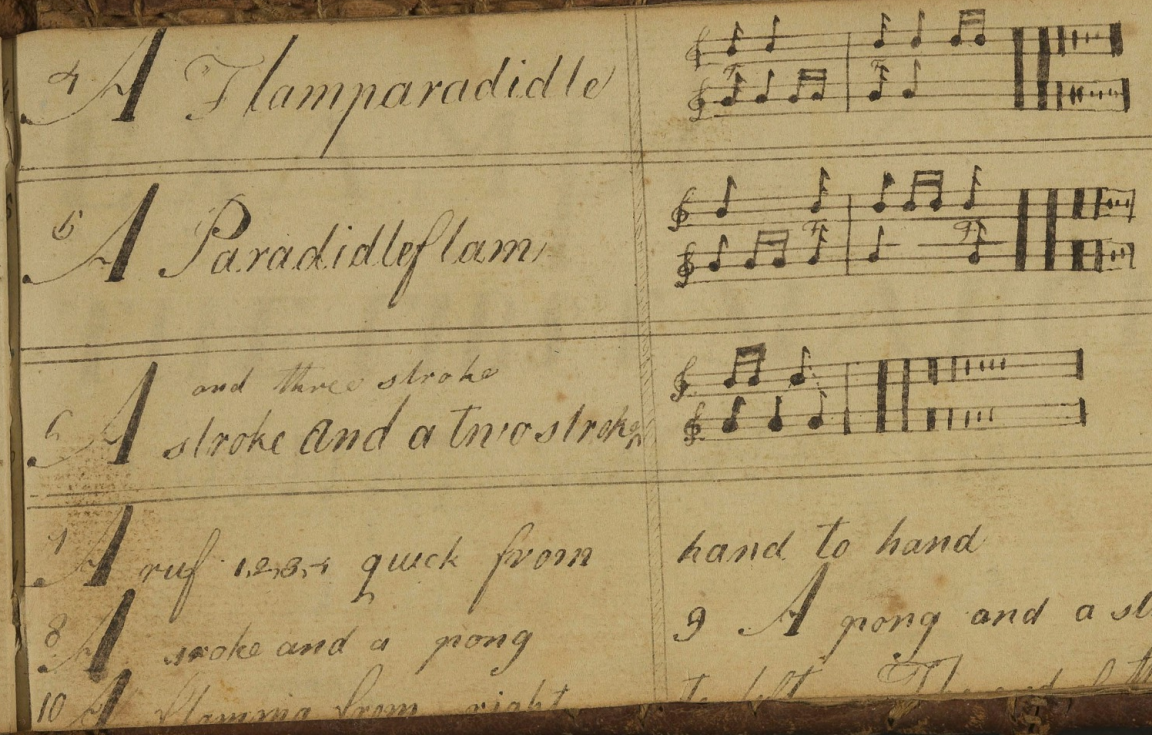 4 A Flamparadidle
5 A Paradidleflam
and three stroke
6 A stroke and a two stroke
7 A ruf 1,2,3,4 quick from hand to hand
8 A stroke and a pong 9 A pong and a st
10 A flaming from right to left